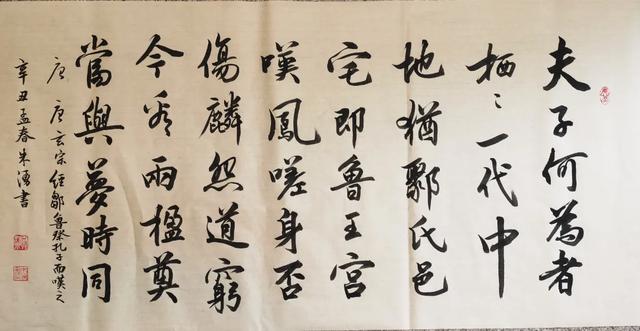 夫子何為者
栖々一代中
地猶鄹氏邑
宅即魯王宮
嘆鳳嗟身否
傷麟怨道窮
今看兩楹奠
當與夢時同
唐 唐玄宗經鄒魯祭孔子而嘆之
辛丑孟春朱濤書